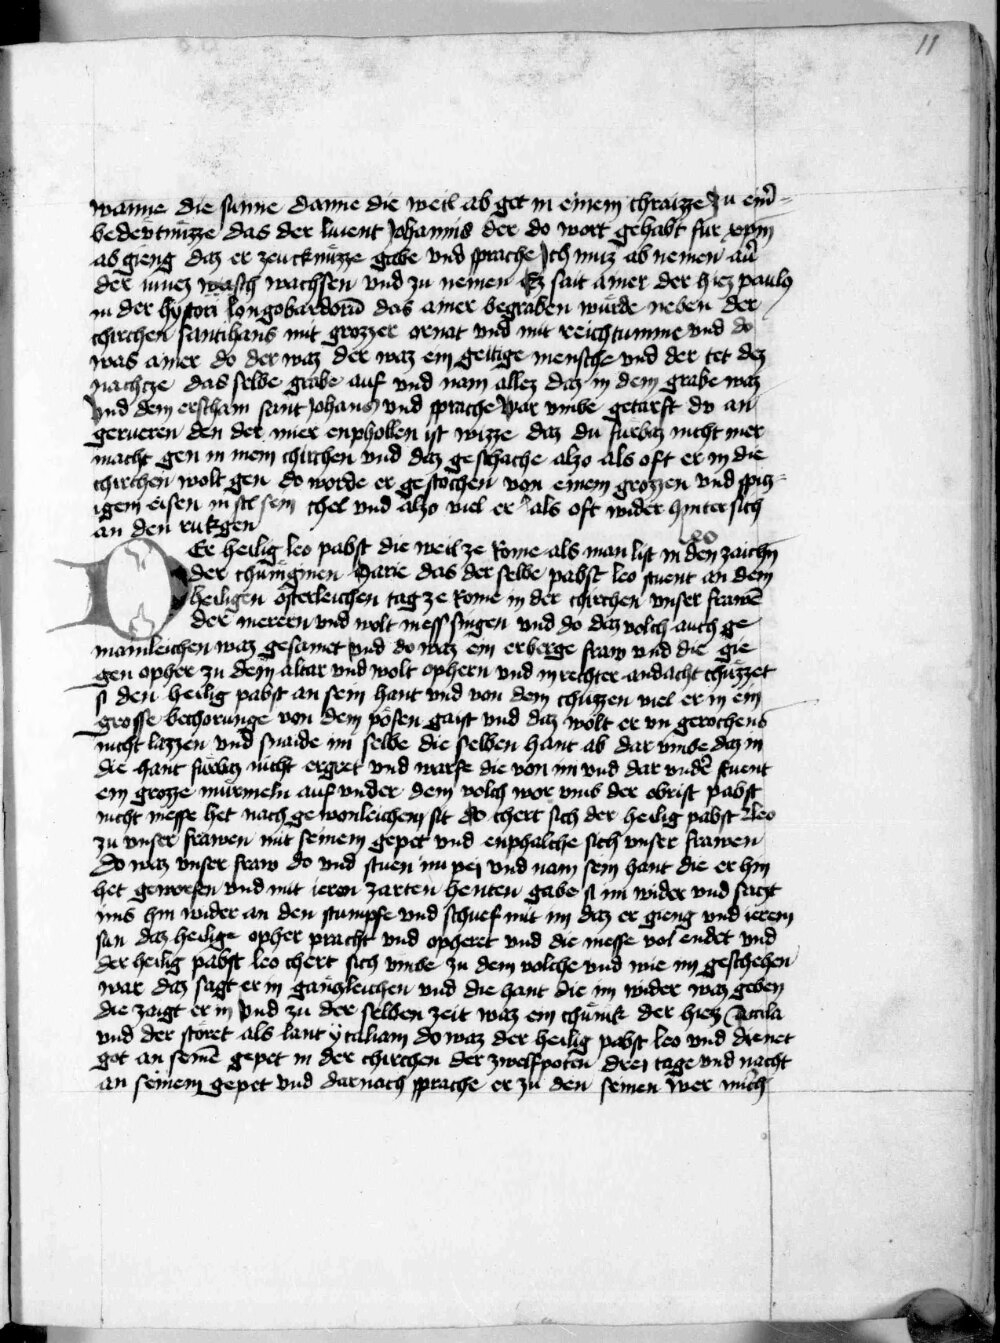 11
wanne die sunne danne die weil ab get in einem chraizze zu eim̄
bedeutnuzze das der liuent Johannis der do wort gehabt fur xpm
ab gieng daz er zeucknuzze gabe vnd sprache Ich muz ab nemen au͛
der muez wachsen vnd zu nemen Ez sait ainer der hiez paulus
in der hystori longobardorū das ainer begraben wurde neben der
chirchen santihans mit grozzer ornat vnd mit reichtumme vnd do
was ainer do der waz der waz ein geitige mensche vnd der tet dez
nachtze das selbe grabe auf vnd nam allez daz in dem grabe waz
vnd dem erscham sant Johans vnd sprache War vmbe getarst dv an
gerueren den der mier enphollen ist wizze daz du furbaz nicht mer
macht gen in mein chirchen vnd daz geschache alzo als oft er in die
chirchen wolt gen do worde er gestochen von einem grozzen vnd spitz
igem eisen in sein chel vnd alzo viel er als oft wider hinter sich
an den rukgen
leo
DEr heilig leo pabst die weil ze Rome als man list in den zaichn̄
der chuniginen Marie das der selbe pabst leo stuent an dem
heiligen osterleichen tag ze Rome in der chirchen vnser frawē
der merern vnd wolt mess singen vnd do daz volch auch ge
mainleichen waz gesamet vnd do waz ein erberge fraw vnd die gie
gen opher zu dem altar vnd wolt ophern vnd in rechter andacht chuzzet
si den heilig pabst an sein hant vnd von dem chuzzen viel er in ein
grosse bechorunge von dem pösen gaist vnd daz wolt er vn gerochens
nicht lazzen vnd snaide im selbe die selben hant ab dar vmbe daz in
die hant furbaz nicht ergret vnd warfe die von im vnd dar vnder stuent
ein grozze murmeln auf vnder dem volch wor vmb der obrist pabst
nicht messe het nach gewonleichem sit do chert sich der heilig pabst Leo
zu vnser frawen mit seinem gepet vnd enphalche sich vnser frawen
do waz vnser fraw do vnd stuen im pei vnd nam sein hant die er hin
het geworfen vnd mit ieren zarten henten gabe si im wider vnd saczt
ims hin wider an den stumpfe vnd schuef mit im daz er gieng vnd ierem
sun daz heilige opher pracht vnd opheret vnd die messe vol endet vnd
der heilig pabst leo chert sich vmbe zu dem volche vnd wie im geschehen
war daz sagt er in ganczleichen vnd die hant die im wider waz geben
die zaigt er in vnd zu der selben zeit waz ein chunik der hiez Attila
vnd der storet als lant ytaliam do waz der heilig pabst leo vnd dienet
got an seinē gepet in der chirchen der zwelfpoten drei tage vnd nacht
an seinem gepet vnd darnach sprache er zu den seinen wer mich